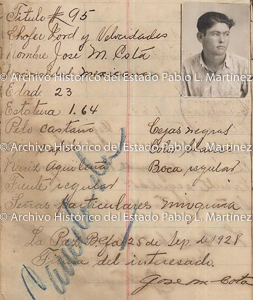 Título # 95
Chofer Ford y Velocidades
Nombre José M. Cota
© Archivo Histórico del Estado Pablo L. Martínez
Edad 23
Estatura 1.64
Pelo castaño Cejas negras
© Archivo Histórico del Estado Pablo L. Martínez
Nariz Aguileña Boca regular
Frente regular
Señas particulares ninguna
© Archivo Histórico del Estado Pablo L. Martínez
La Paz B. Cfa. 25 de Sep. de 1928
Firma del interesado
© Archivo Histórico del Estado Pablo L. Martínez
Jose M Cota